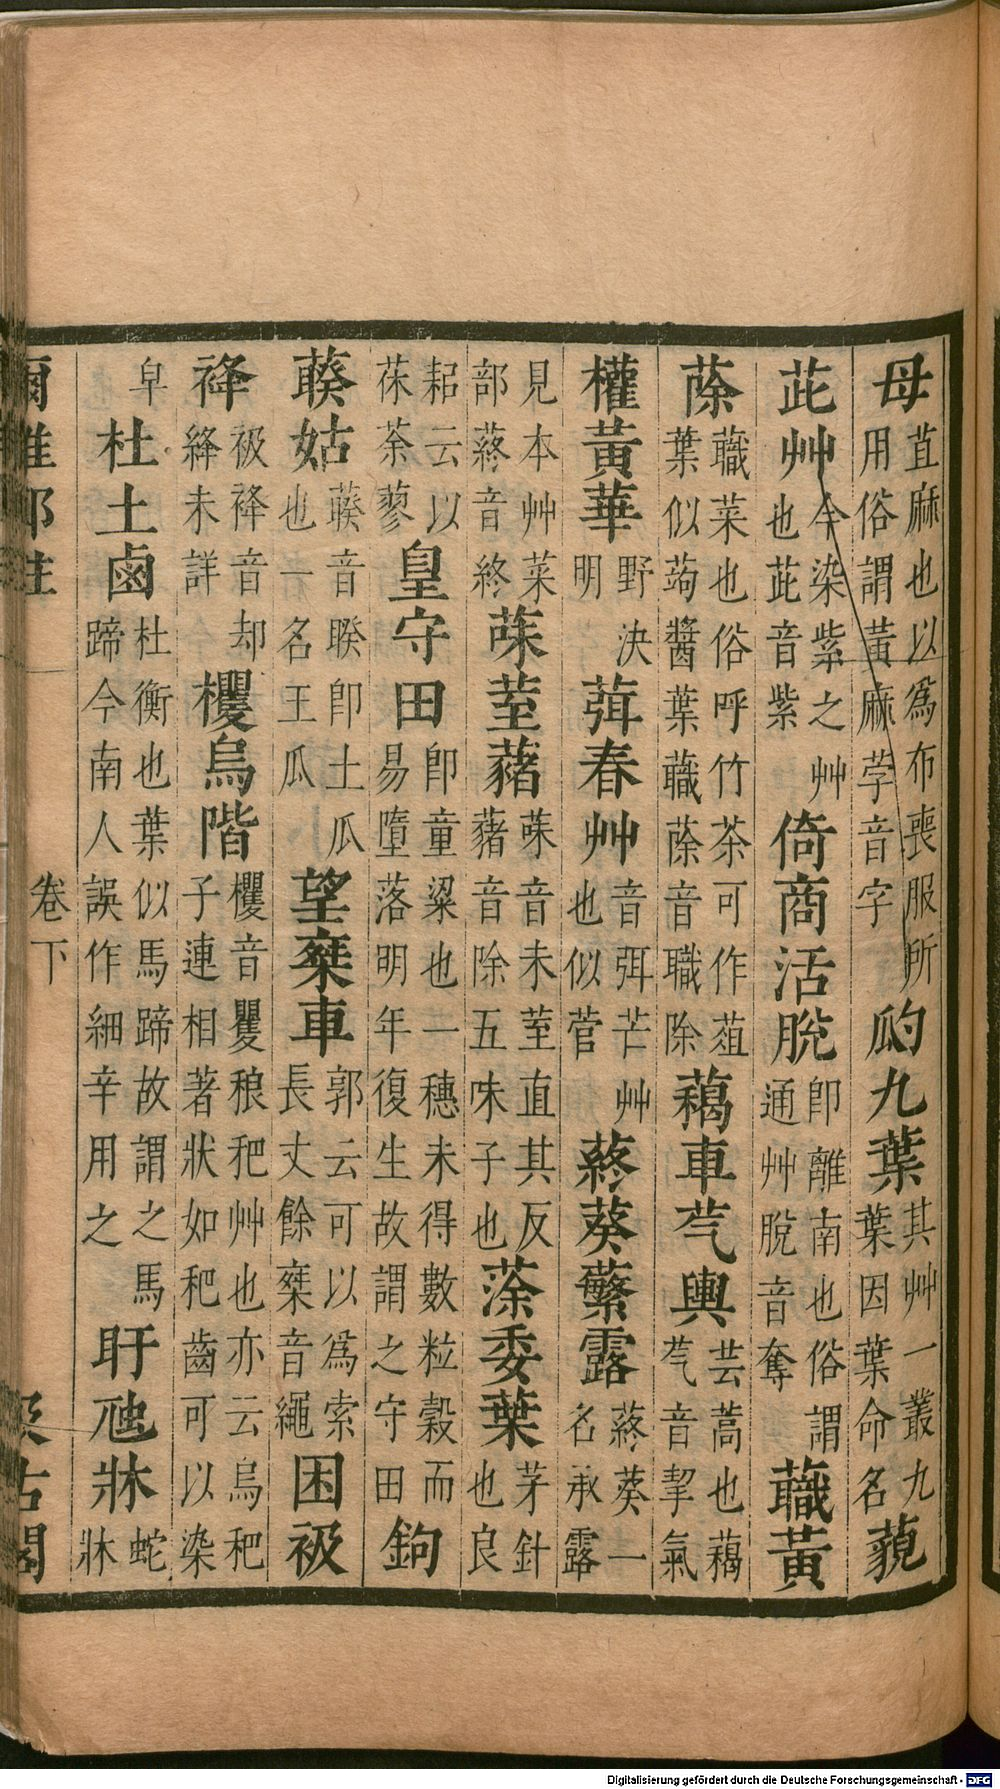 母苴麻也以爲布喪服所用俗謂黃麻茡音字瓝九葉其艸一叢九葉因葉命名藐
茈艸今染紫之艸也茈音紫倚商活脫卽離南也俗謂通艸脫音奪蘵黃
蒢蘵菜也俗呼竹茶可作葅葉似蒟醬葉蘵蒢音職除藒車芞輿芸蒿也藒芞音挈氣
權黃華野決明葞春艸音弭芒艸也似菅蔠葵蘩露蔠葵一名承露
見本艸菜部蔠音終菋荎藸菋音未荎直其反藸音除五味子也蒤委葉茅針也良
耜云以茠荼蓼皇守田卽童粱也一穗未得數粒穀而易墮落明年復生故謂之守田鉤
藈姑藈音睽卽土瓜也一名王瓜望椉車郭云可以爲索長丈餘椉音繩困衱
袶衱袶音却絳未詳欔烏階欔音瞿稂䆉艸也亦云烏䆉子連相著狀如䆉齒可以染
皁杜土鹵杜衡也葉似馬蹄故謂之馬蹄今南人誤作細辛用之盱虺牀蛇牀
爾雅鄭注 卷下 汲古閣
Digitalisierung gefördert durch die Deutsche Forschungsgemeinschaft - DFG